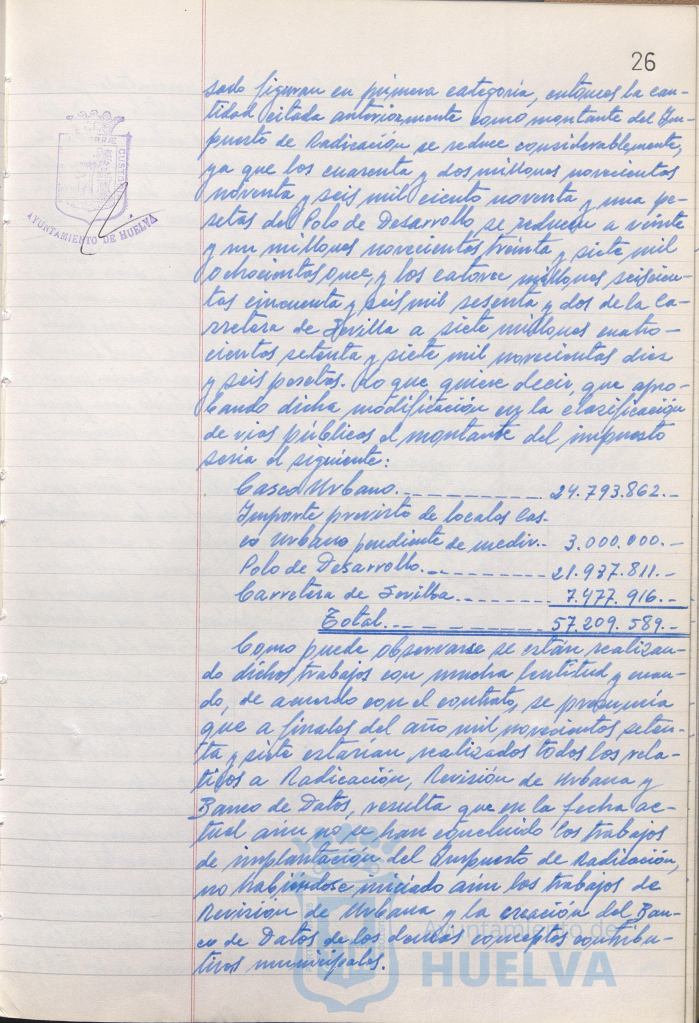 26
sado figuran en primera categoría, entonces la can-
tidad citada anteriormente como montante del Im-
puesto de Radicación se reduce considerablemente,
ya que los cuarenta y dos millones novecientos
noventa y seis mil ciento noventa y una pe-
setas del Polo de Desarrollo se reducen a veinte
y un millones novecientos treinta y siete mil
ochocientos once, y los catorce millones seiscien-
tas cincuenta y seis mil sesenta y dos de la Ca-
rretera de Sevilla a siete millones cuatro-
cientos setenta y siete mil novecientos diez
y seis pesetas. Lo que quiere decir, que apro-
bando dicha modificación en la clasificación
de vías públicas el montante del impuesto
sería el siguiente:
Casco Urbano ---------- 24.793.862.-
Importe previsto de locales Cas-
co Urbano pendiente de medir.- 3.000.000.-
Polo de Desarrollo ---------- 21.937.811.-
Carretera de Sevilla ---------- 7.477.916.-
Total ---------- 57.209.589.-
Como puede observarse se están realizan-
do dichos trabajos con mucha lentitud y cuan-
do, de acuerdo con el contrato, se presumía
que a finales del año mil novecientos seten-
ta y siete estarían realizados todos los rela-
tivos a Radicación, Revisión de Urbana y
Banco de Datos, resulta que en la fecha ac-
tual aún no se han concluido los trabajos
de implantación del Impuesto de Radicación,
no habiéndose iniciado aún los trabajos de
Revisión de Urbana y la creación del Ban-
co de Datos de los demás conceptos contribu-
tivos municipales.
AYUNTAMIENTO DE HUELVA
Ayuntamiento de
HUELVA